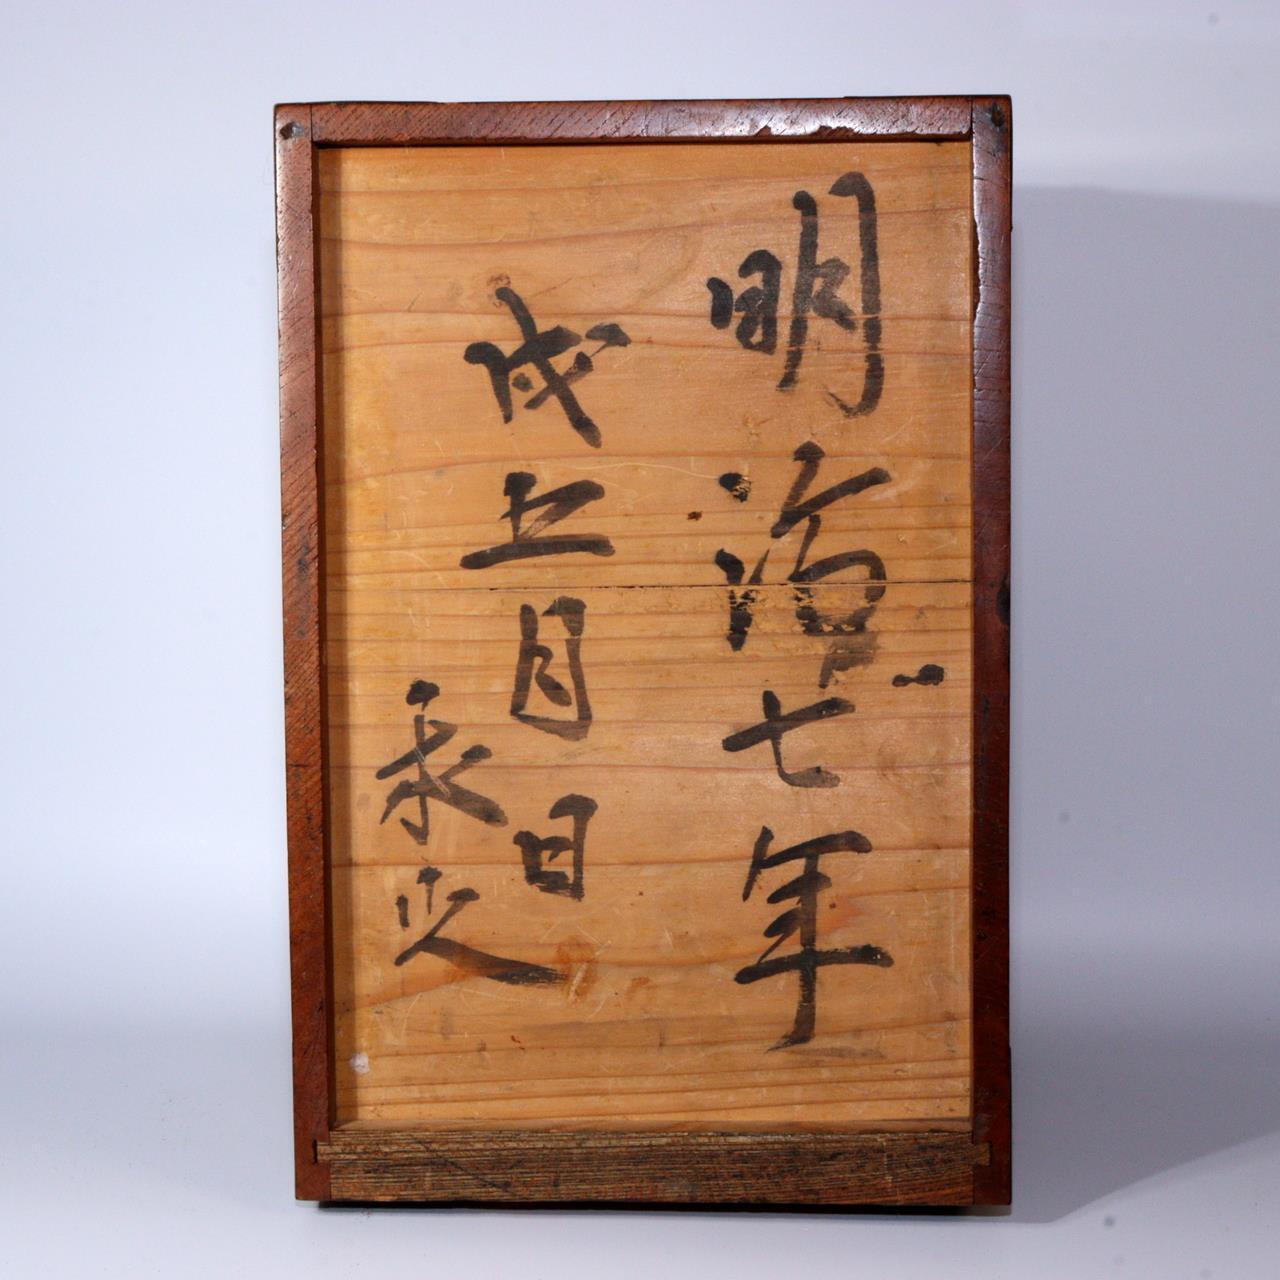 明治七年
戌五月日
永久